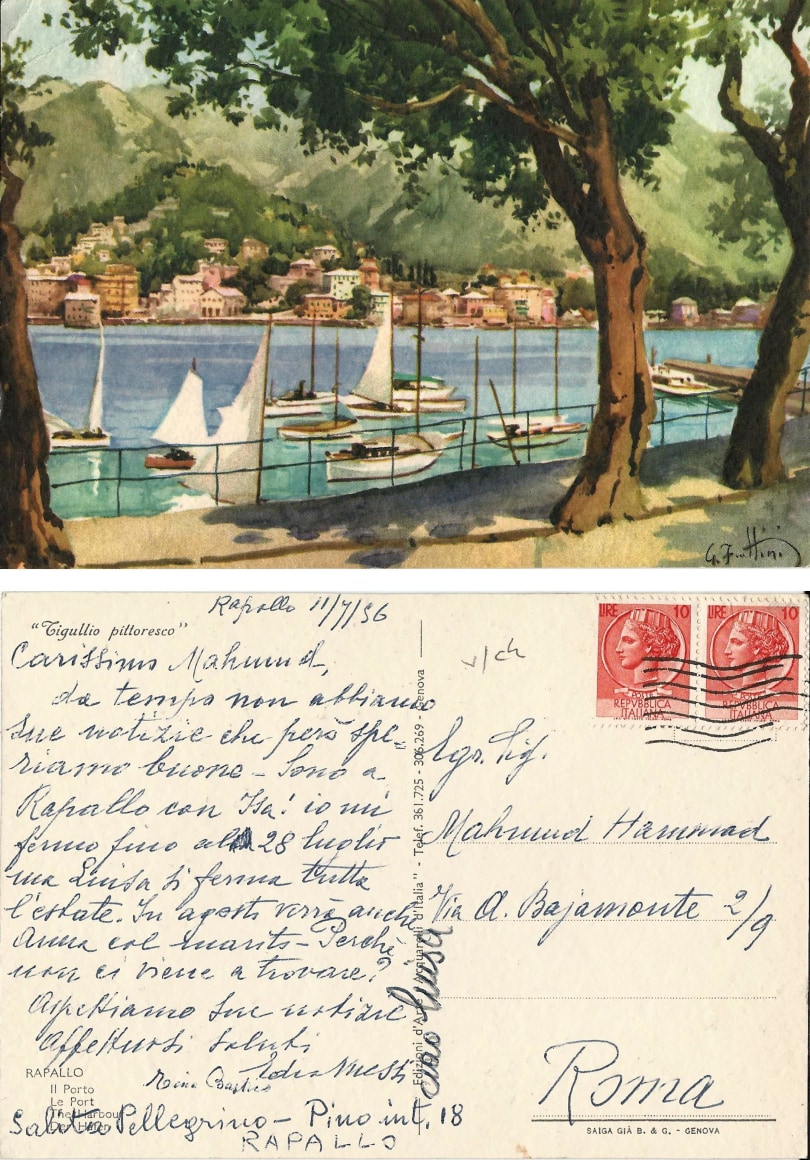 G. Frattini
Rapallo 11/7/56
"Tigullio pittoresco"
Carissimo Mahmud,
da tempo non abbiamo
sue notizie che però spe-
riamo buone - Sono a
Rapallo con Isa! io mi
fermo fino al 28 luglio
ma Luisa si ferma tutta
l'estate. In agosto verrà anche
Anna col marito - Perché
non ci viene a trovare?
Aspettiamo sue notizie
Affettuosi saluti
ciao Luisa
Salita Pellegrino - Pino int. 18
RAPALLO
RAPALLO
Il Porto
Le Port
The Harbour
Der Hafen
Edizioni d'Arte "Acquarelli d'Italia" - Telef. 361.725 - 306.269 - Genova
v/ch
LIRE 10
POSTE
REPVBBLICA
ITALIANA
LIRE 10
POSTE
REPVBBLICA
ITALIANA
Egr. Sig.
Mahmud Hammad
Via A. Bajamonte 2/9
Roma
SAIGA GIÀ B. & G. - GENOVA